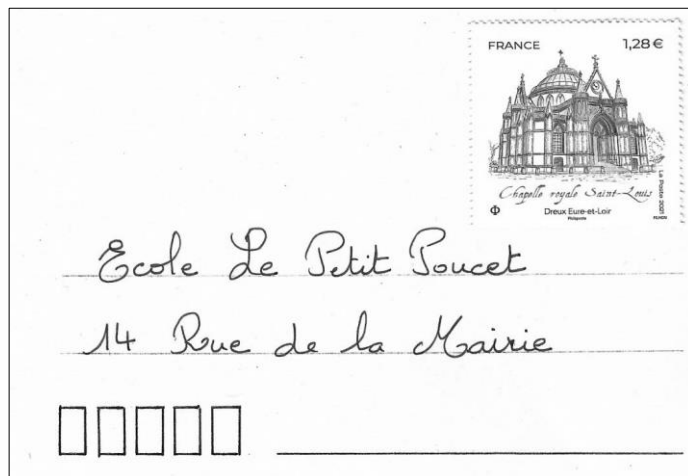 FRANCE 1,28 €
Chapelle royale Saint-Louis
Dreux Eure-et-Loir
La Poste 2021
Ecole Le Petit Poucet
14 Rue de la Mairie